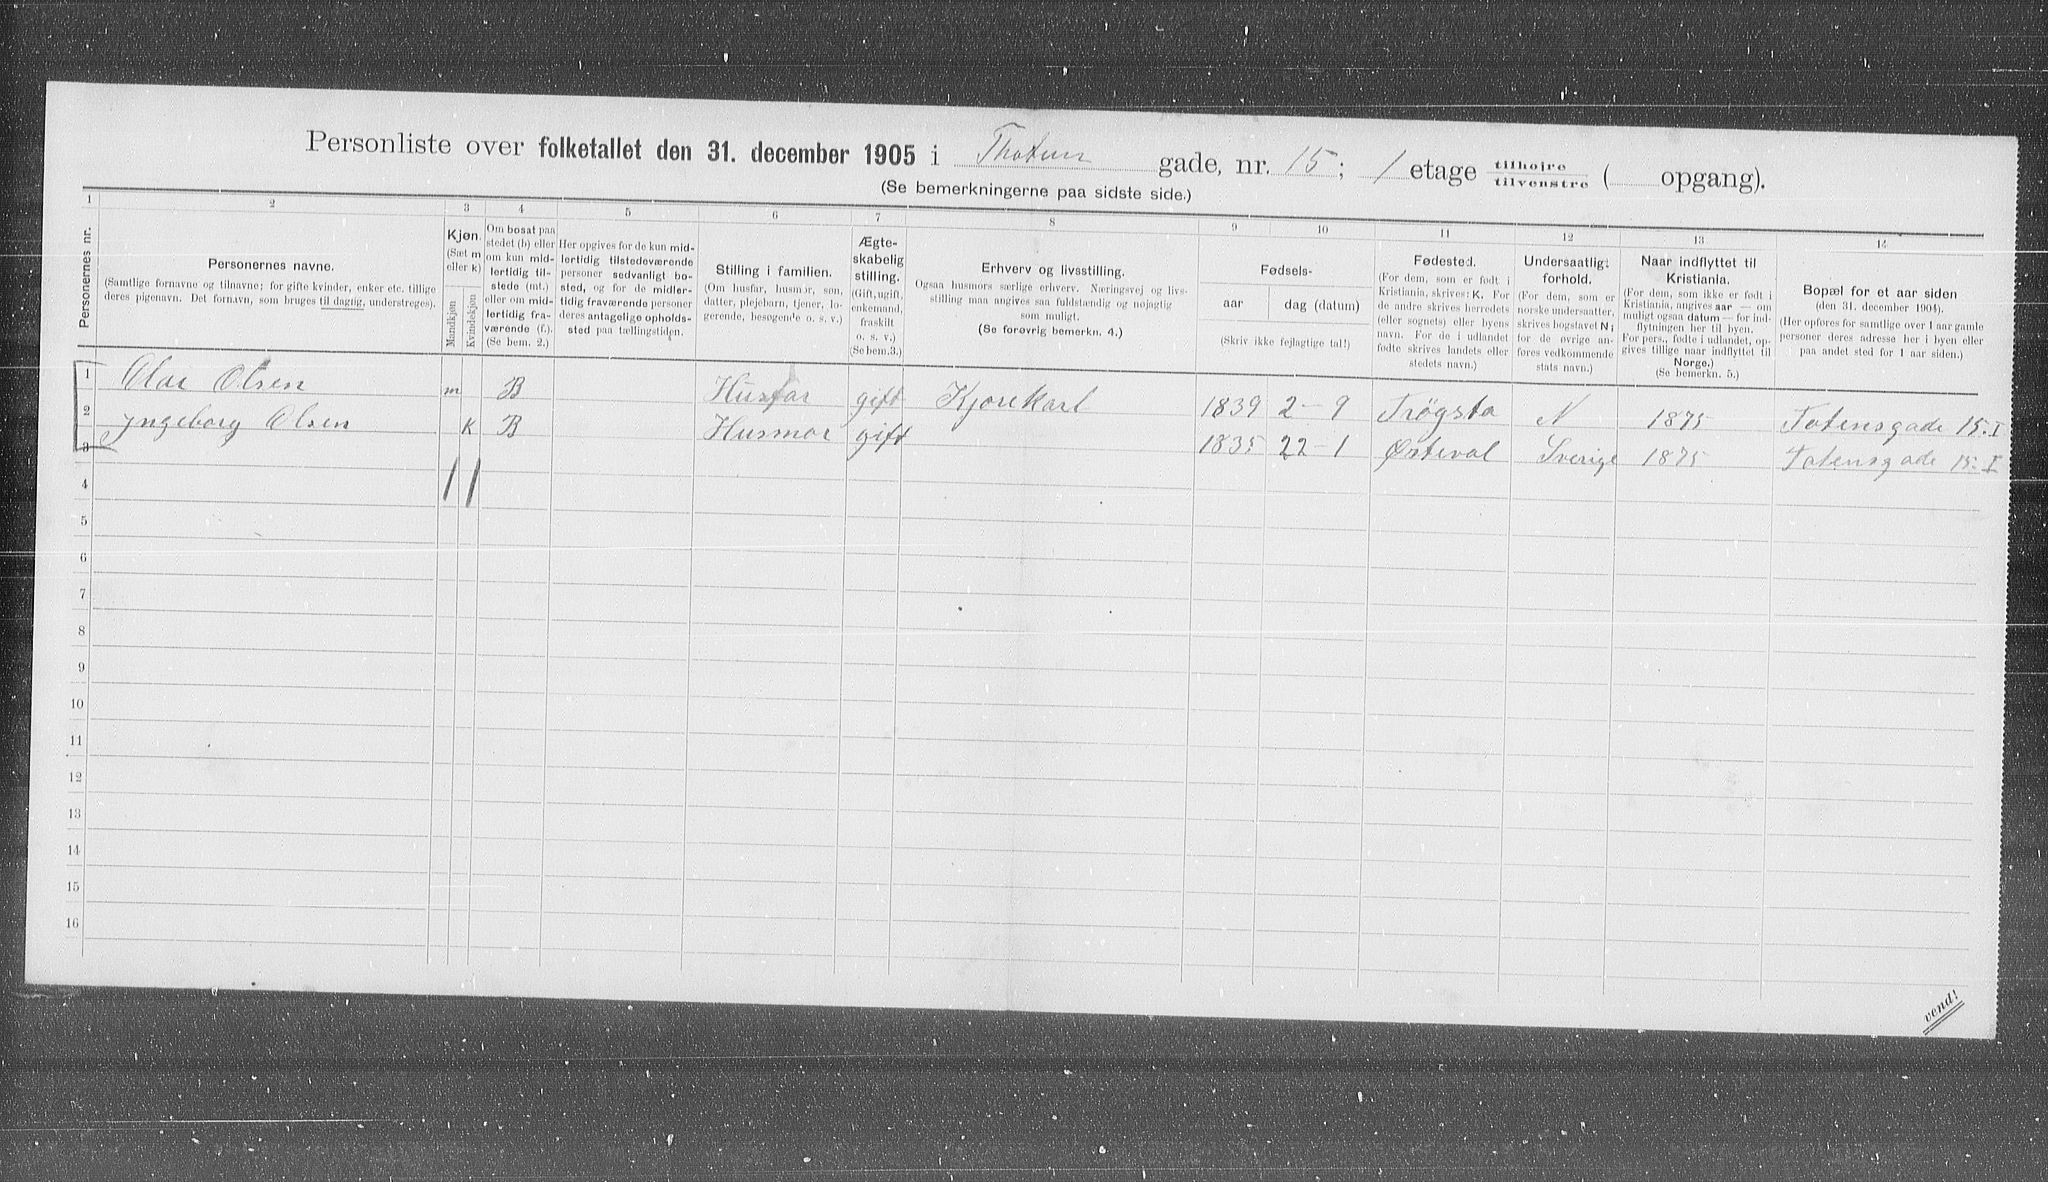 Personliste over folketallet den 31. december 1905 i Thotens gade, nr. 15; 1 etage tilhoire tilvenstre ( opgang).
(Se bemerkningerne paa sidste side.)
1 2 3 4 5 6 7 8 9 10 11 12 13 14
Personernes nr.
Personernes navne.
(Samtlige fornavne og tilnavne; for gifte kvinder, enker etc. tillige
deres pigenavn. Det fornavn, som bruges til daglig, understreges).
Kjøn.
(Sæt m
eller k)
Mandkjøn
Kvindekjøn
Om bosat paa
stedet (b) eller
om kun mid-
lertidig til-
stede (mt.)
eller om mid-
lertidig fra-
værende (f.).
(Se bem. 2.)
Her opgives for de kun mid-
lertidig tilstedeværende
personer sedvanligt bo-
sted, og for de midler-
tidig fraværende personer
deres antagelige opholds-
sted paa tællingstiden.
Stilling i familien.
(Om husfar, husmor, søn,
datter, plejebarn, tjener, lo-
gerende, besøgende o. s. v.)
Ægte-
skabelig
stilling.
(Gift, ugift,
enkemand,
fraskilt
o. s. v.)
(Se bem. 3.)
Erhverv og livsstilling.
Ogsaa husmors særlige erhverv. Næringsvej og livs-
stilling maa angives saa fuldstændig og nøjagtig
som muligt.
(Se forøvrig bemerkn. 4.)
Fødsels-
aar
dag (datum)
(Skriv ikke fejlagtige tal!)
Fødested.
(For dem, som er født i
Kristiania, skrives: K. For
de andre skrives herredets
(eller sognets) eller byens
navn. For de i udlandet
fødte skrives landets eller
stedets navn.)
Undersaatlig:
forhold.
(For dem, som er
norske undersaatter,
skrives bogstavet N;
for de øvrige an-
føres vedkommende
stats navn.)
Naar indflyttet til
Kristiania.
(For dem, som ikke er født i
Kristiania, angives aar — om
muligt ogsaa datum — for ind-
flytningen her til byen.
For pers., fødte i udlandet, op-
gives tillige naar indflyttet til
Norge.)
(Se bemerkn. 5.)
Bopæl for et aar siden
(den 31. december 1904).
(Her opføres for samtlige over 1 aar gamle
personer deres adresse her i byen eller
paa andet sted for 1 aar siden.)
1 Olai Olsen m B Husfar gift Kjørekarl 1839 2-9 Trögsta N 1875 Totensgade 15. I
2 Ingeborg Olsen K B Husmor gift 1835 22-1 Østeval Sverige 1875 Totensgade 15. I
3
4 1 1
5
6
7
8
9
10
11
12
13
14
15
16
vend!